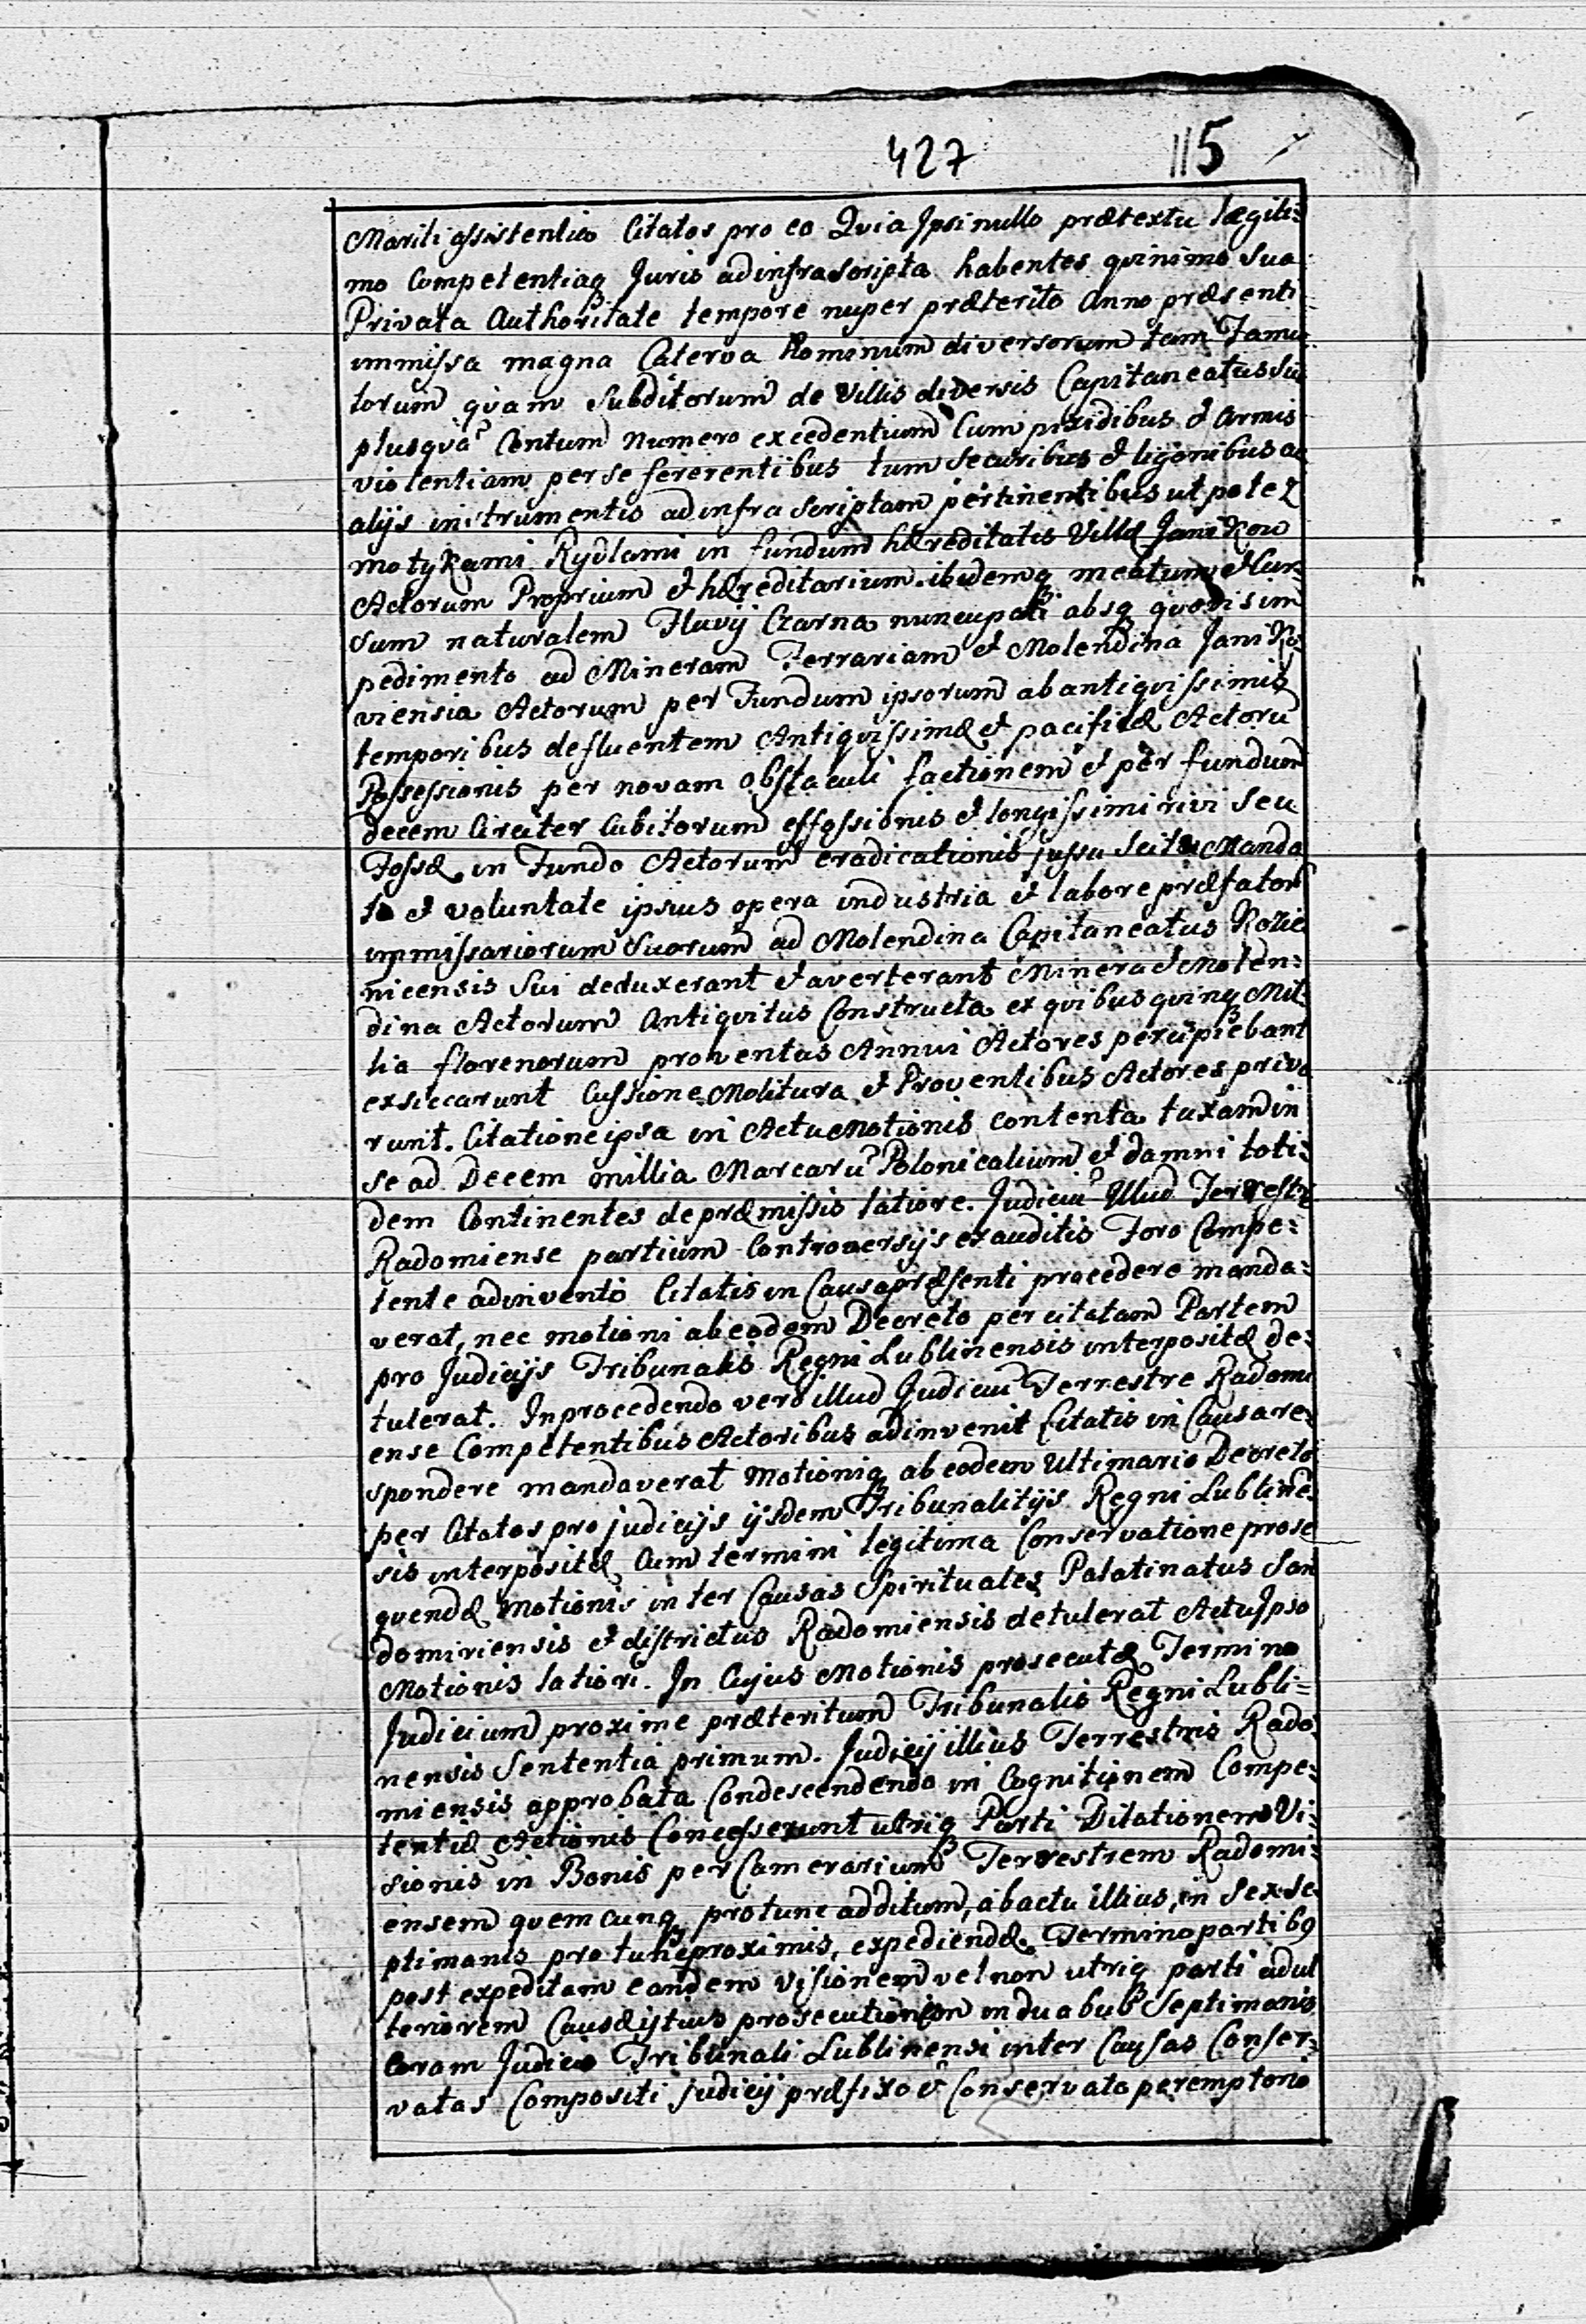 427 115
Mariti assistentia Citatos pro eo Qvia Ipsi nullo prætextu Legiti=
mo Competentiaq Juris ad infrascripta habentes qvinimo sua
Privata Authoritate tempore nuper præterito Anno præsenti
immissa magna Caterva Hominum diversorum tam Famu
lorum qvam Subditorum de Villis diversis Capitaneatus sui
plusqva Centum numero excedentium Cum pixidibus et Armis
violentiam per se fererentibus tum Securibus et ligonibus ac
alijs instrumentis ad infra scriptam pertinentibus ut pote z
motykami Rydlami in fundum hæreditatis Villæ Janikow
Actorum Proprium et hæreditarium ibidemq meatum et Cur=
sum naturalem Fluvij Czarna nuncupati absq qvovis im
pedimento ad Mineram Ferrariam et Molendina Janiko=
viensia Actorum per Fundum ipsorum ab antiqvissimis
temporibus defluentem Antiqvissimæ et pacificæ Actoru
Possessionis per novam obstaculi factionem et per fundum
decem Circiter Cubitorum effossionis et longissimi rivi seu
Fossæ in Fundo Actorum eradicationis jussu scitu Manda
to et voluntate ipsius opera industria et labore præfator
immissariorum suorum ad Molendina Capitaneatus Kozie
nicensis sui deduxerant et averterant Minera et Molen=
dina Actorum Antiqvitus Constructa ex qvibus qvinq Mil=
lia florenorum proventus Annui Actores percipiebant
exsiccarunt Cussione Molitura et Proventibus Actores priva
runt. Citatione ipsa in Actu Motionis contenta tuxam in
se ad Decem millia Marcaru Polonicalium et damni toti=
dem Continentes de præmissis latiore. Judiciu Illud Terrestre
Radomiense partium Controversijs exauditis Foro Compe=
tente adinvento Citatis in Causa præsenti procedere manda=
verat, nec motioni ab eodem Decreto per citatam Partem
pro Judicijs Tribunalis Regni Lublinensis interpositæ de=
tulerat. In procedendo vero illud Judiciu Terrestre Radomi
ense Competentibus Actoribus adinvenit Citatis in Causa re=
spondere mandaverat Motioniq ab eodem Ultimario Decreto
per Citatos pro judicijs ijsdem Tribunalitijs Regni Lubline
sis interpositæ, Cum termini legitima Conservatione prose
quendæ Motionis inter Causas Spirituales Palatinatus San
domiriensis et districtus Radomiensis detulerat Actu Ipso
Motionis latiori. In Cujus Motionis prosecutæ Termino
Judicium proxime præteritum Tribunalis Regni Lubli=
nensis Sententia primum. Judicij illius Terrestris Rado
miensis approbata Condescendendo in Cognitionem Compe=
tentiæ Actionis Concesserunt utriq Parti Dilationem Vi=
sionis in Bonis per Camerarium Terrestrem Radomi=
ensem quemcunq pro tunc additum, ab actu illius, in Sex se
ptimanis pro tunc proximis, expediendæ. Termino partib9
post expeditam eandem visionem vel non utriq parti ad ul
teriorem Causæ istius prosecutionem in duabus Septimanis
Coram Judicio Tribunali Lublinensi inter Causas Conser=
vatas Compositi judicij præfixo et Conservato peremptorio